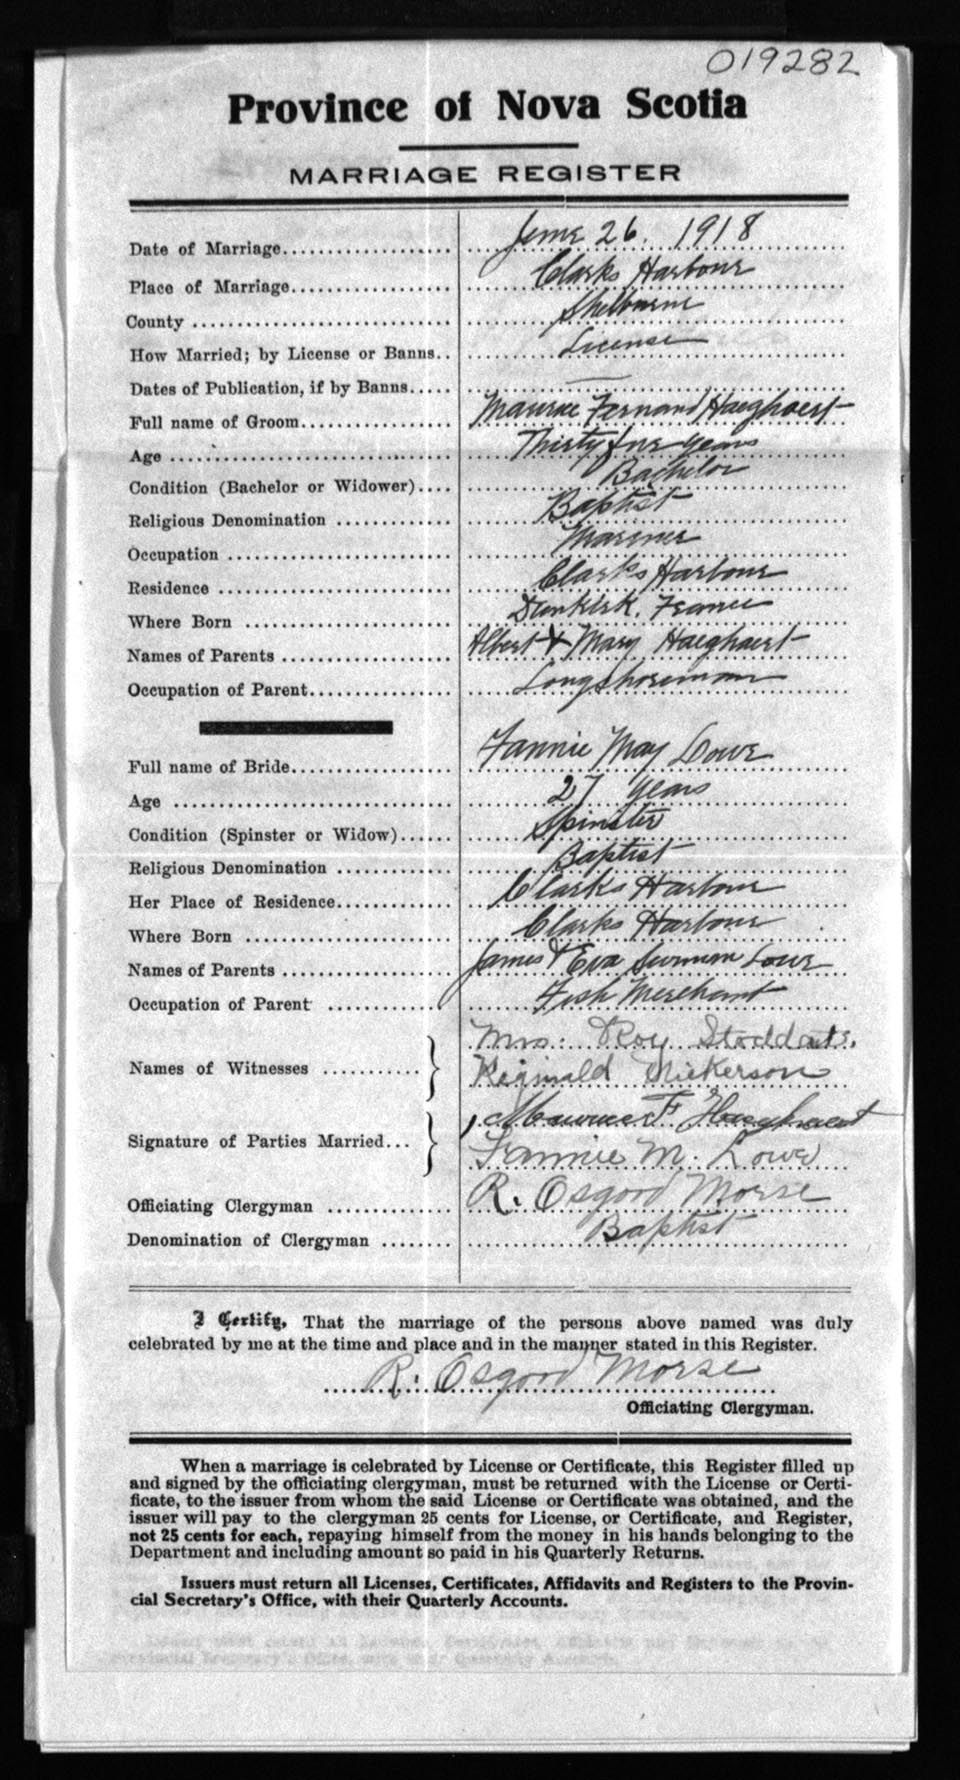 019282
Province of Nova Scotia
MARRIAGE REGISTER
Date of Marriage.................... June 26. 1918
Place of Marriage................... Clarks Harbour
County .............................. Shelburne
How Married; by License or Banns.. License
Dates of Publication, if by Banns..... —
Full name of Groom.................. Maurice Fernand Haeghaert
Age ................................. Thirty five years
Condition (Bachelor or Widower).... Bachelor
Religious Denomination ............. Baptist
Occupation .......................... Mariner
Residence ........................... Clarks Harbour
Where Born ......................... Dunkirk, France
Names of Parents ................... Albert & Mary Haeghaert
Occupation of Parent................ Longshoreman
Full name of Bride.................. Fannie May Lowe
Age ................................. 27 years
Condition (Spinster or Widow)...... Spinster
Religious Denomination ............. Baptist
Her Place of Residence.............. Clarks Harbour
Where Born ......................... Clarks Harbour
Names of Parents ................... James & Eva Swimm Lowe
Occupation of Parent ............... Fish Merchant
Mrs. Roy Stoddart.
Names of Witnesses ...........
Reginald Nickerson
Maurice F Haeghaert
Signature of Parties Married...
Fannie M. Lowe
Officiating Clergyman .............. R. Osgood Morse
Denomination of Clergyman ........ Baptist
I Certify, That the marriage of the persons above named was duly
celebrated by me at the time and place and in the manner stated in this Register.
R. Osgood Morse
Officiating Clergyman.
When a marriage is celebrated by License or Certificate, this Register filled up
and signed by the officiating clergyman, must be returned with the License or Certi-
ficate, to the issuer from whom the said License or Certificate was obtained, and the
issuer will pay to the clergyman 25 cents for License, or Certificate, and Register,
not 25 cents for each, repaying himself from the money in his hands belonging to the
Department and including amount so paid in his Quarterly Returns.
Issuers must return all Licenses, Certificates, Affidavits and Registers to the Provin-
cial Secretary's Office, with their Quarterly Accounts.